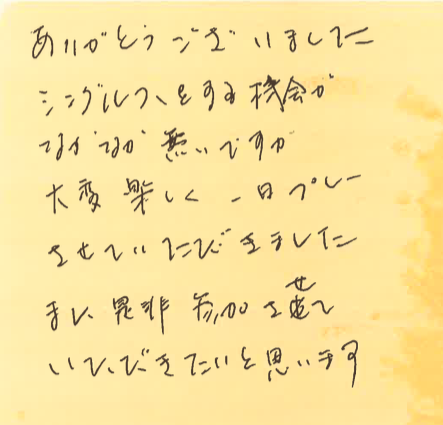 ありがとうございました
シングルスをする機会が
なかなか無いですが
大変楽しく一日プレー
させていただきました
また是非参加させて
いただきたいと思います